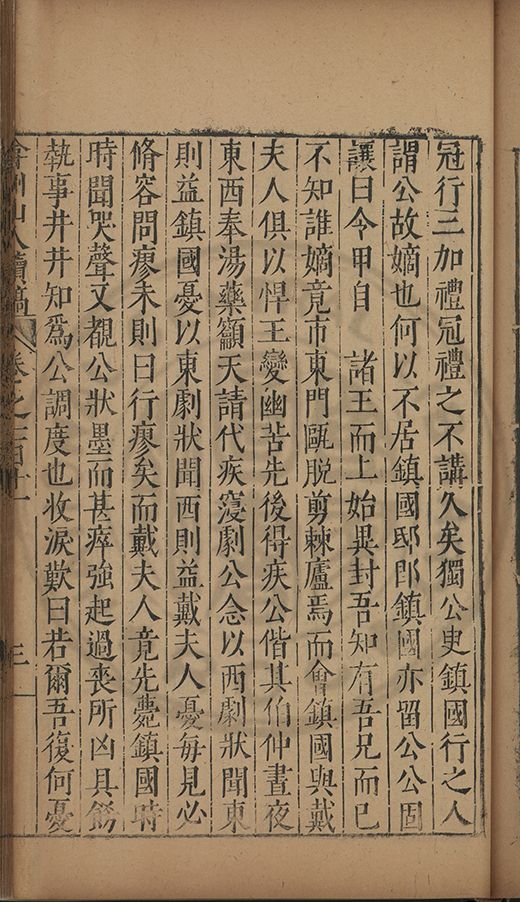 冠行三加禮冠禮之不講久矣獨公史鎮國行之人
謂公故嫡也何以不居鎮國邸卽鎮國亦留公公固
讓曰今甲自　諸王而上始異封吾知有吾兄而已
不知誰嫡竟市東門甌脱剪棘廬焉而會鎮國與戴
夫人俱以悍王變幽苦先後得疾公偕其伯仲晝夜
東西奉湯藥籲天請代疾寖劇公念以西劇狀聞東
則益鎮國憂以東劇狀聞西則益戴夫人憂每見必
脩容問瘳未則曰行瘳矣而戴夫人竟先薨鎮國時
時聞哭聲又覩公狀墨而甚瘁強起過喪所凶具飭
執事井井知爲公調度也收淚歎曰若爾吾復何憂
弇州山人續稿　卷之
三